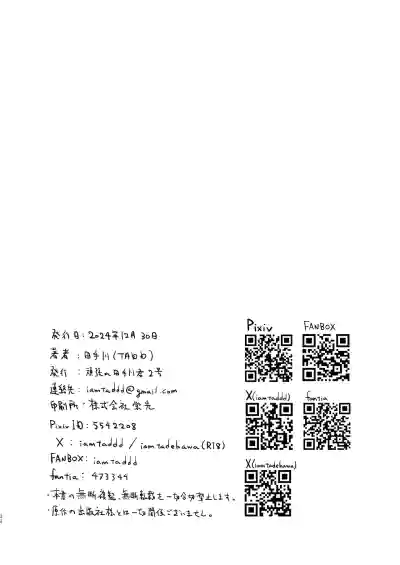 発行日：2024年12月30日
著者：田手川(TAbb)
発行：頑張れ田手川君2号
連絡先：iamtaddd@gmail.com
印刷所：株式会社栄光
Pixiv ID：5542208
X：iamtaddd / iamtadehawa(R18)
FANBOX：iamtaddd
fantia：473344
・本書の無断複製、無断転載を一切禁止します。
・原作の出版社様とは一切関係ございません。
Pixiv
FANBOX
X(iamtaddd)
fantia
X(iamtadehawa)